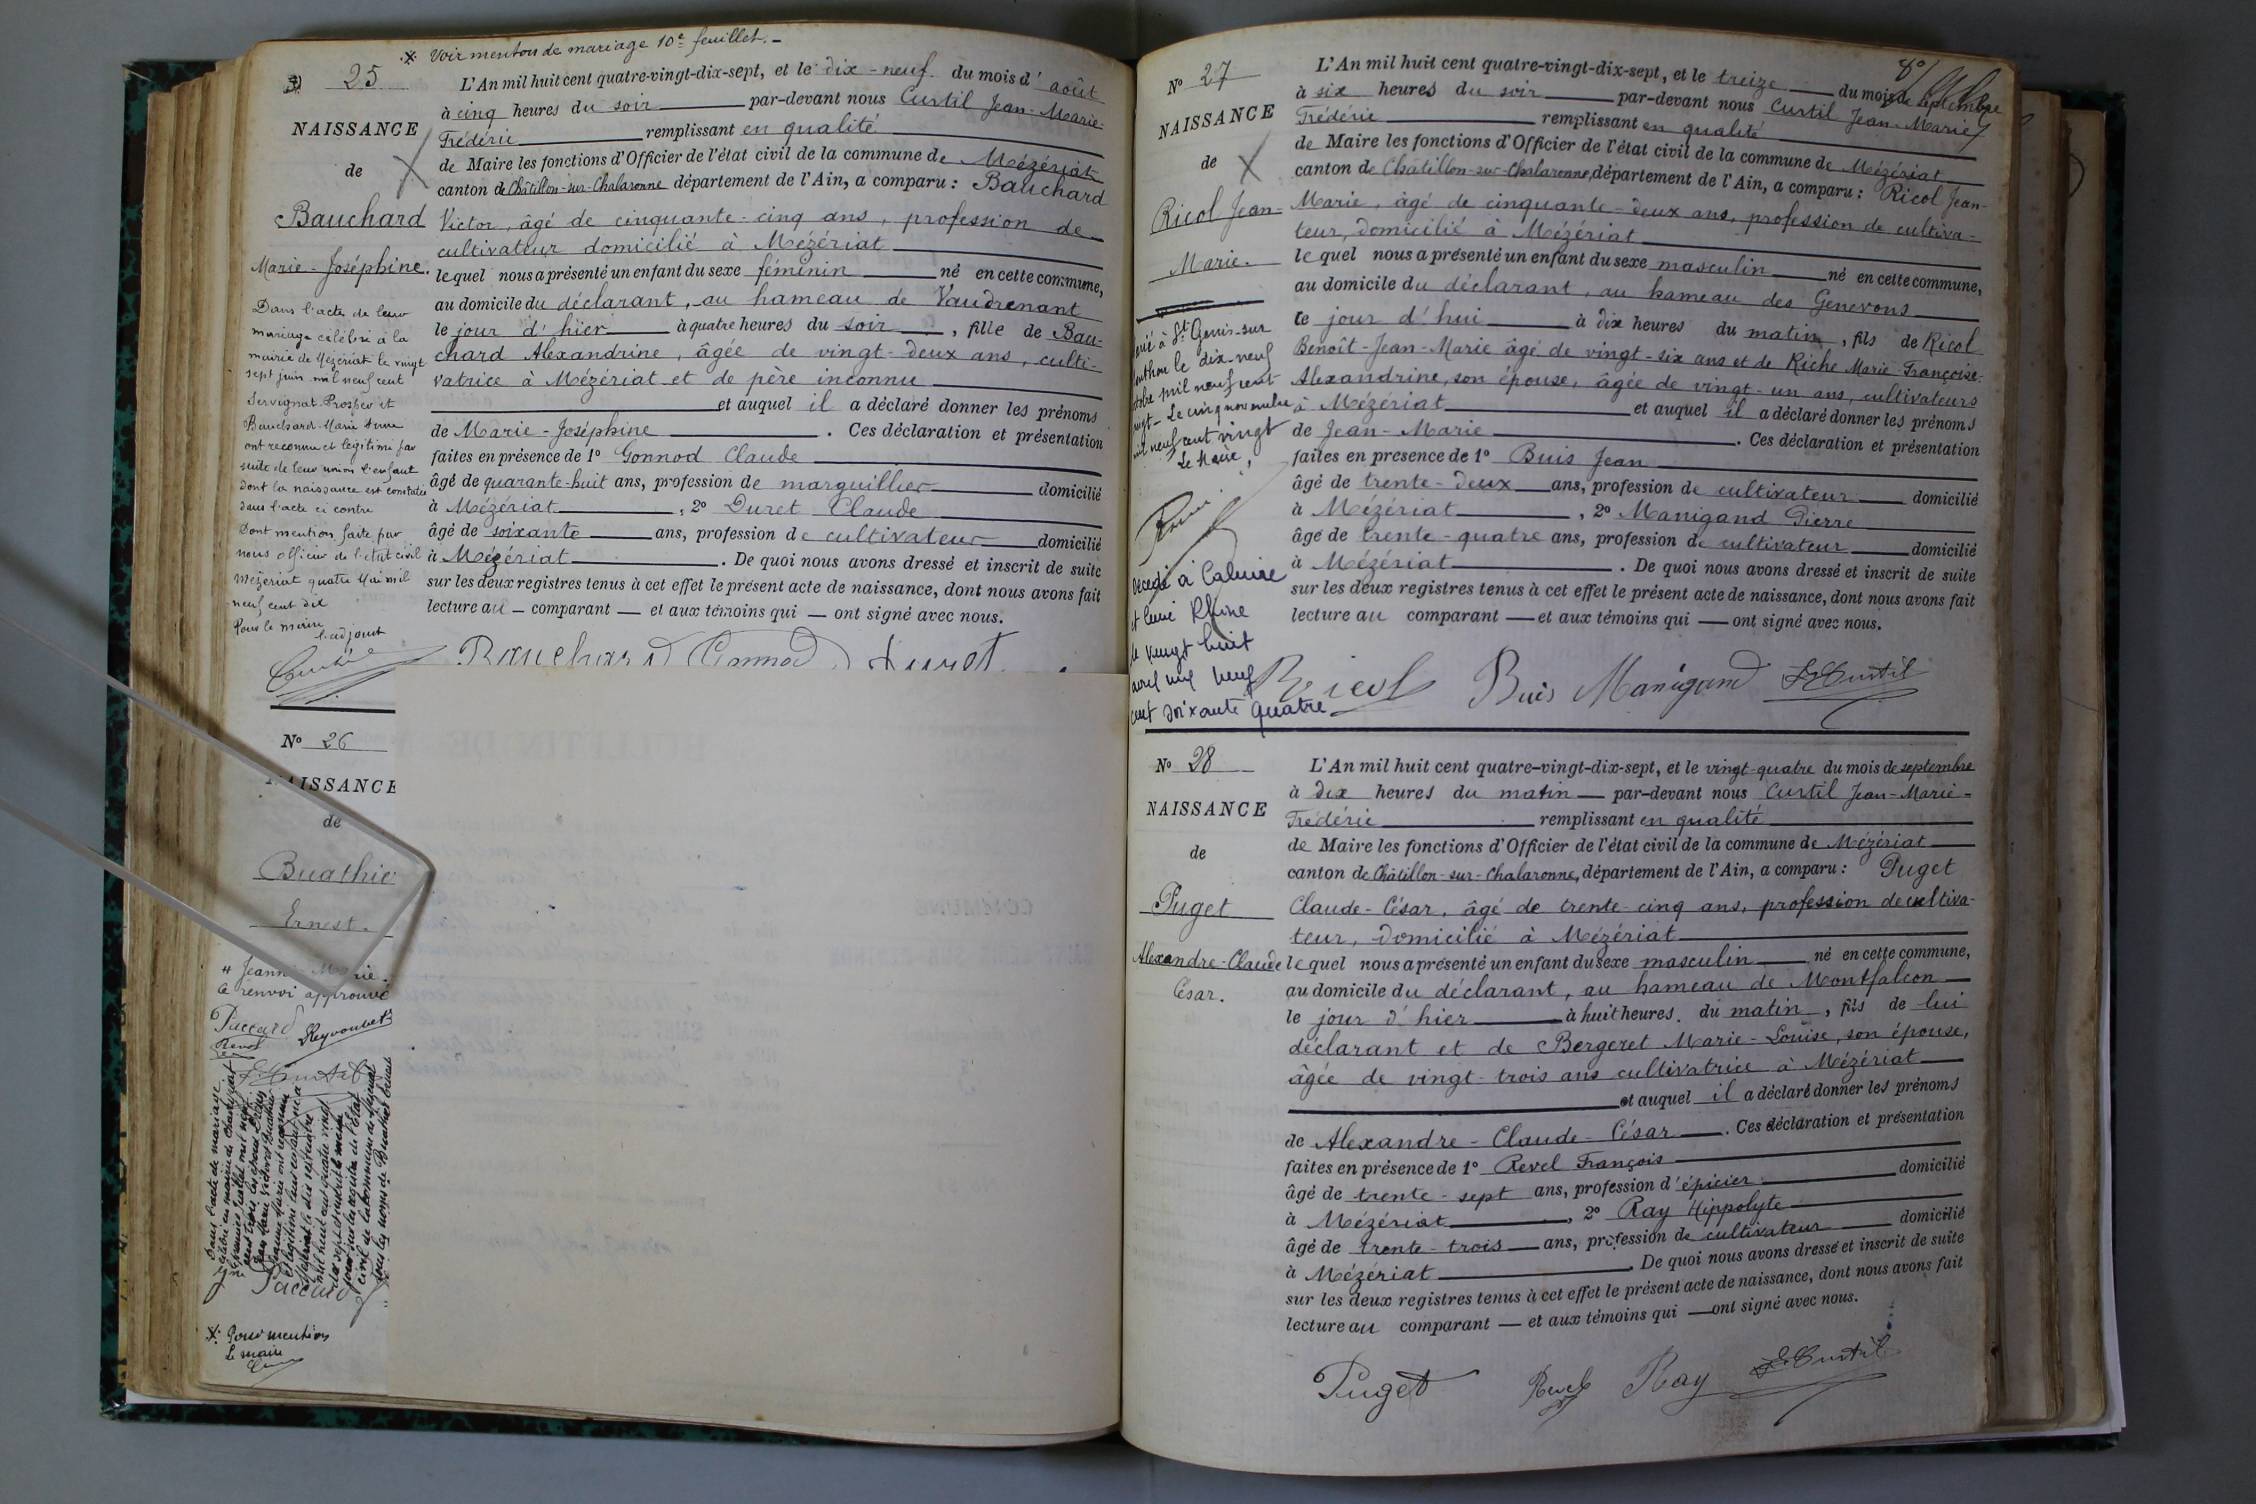 ※ Voir mention de mariage 10e feuillet. –
25
NAISSANCE
de
Bauchard
Marie-Joséphine.
L'An mil huit cent quatre-vingt-dix-sept, et le dix-neuf du mois d'août
à cinq heures du soir par-devant nous Curtil Jean-Marie-
Frédéric remplissant en qualité
de Maire les fonctions d'Officier de l'état civil de la commune de Mézériat
canton de Châtillon-sur-Chalaronne département de l'Ain, a comparu : Bauchard
Victor, âgé de cinquante-cinq ans, profession de
cultivateur domicilié à Mézériat
lequel nous a présenté un enfant du sexe féminin né en cette commune,
au domicile du déclarant, au hameau de Vaudrenant
le jour d'hier à quatre heures du soir, fille de Bau-
chard Alexandrine, âgée de vingt-deux ans, culti-
vatrice à Mézériat et de père inconnu
et auquel il a déclaré donner les prénoms
de Marie-Joséphine. Ces déclaration et présentation
faites en présence de 1° Gonnod Claude
âgé de quarante-huit ans, profession de marguillier domicilié
à Mézériat, 2° Duret Claude
âgé de soixante ans, profession de cultivateur domicilié
à Mézériat. De quoi nous avons dressé et inscrit de suite
sur les deux registres tenus à cet effet le présent acte de naissance, dont nous avons fait
lecture au – comparant — et aux témoins qui — ont signé avec nous.
Bauchard Gonnod Duret
Dans l'acte de leur
mariage célébré à la
mairie de Mézériat le vingt
sept juin mil neuf cent
Servignat Prosper et
Bauchard Marie
ont reconnu et légitimé par
suite de leur union l'enfant
dont la naissance est constatée
dans l'acte ci contre
Dont mention faite par
nous officier de l'état civil
Mézériat quatre Mai mil
neuf cent dix
Pour le maire
l'adjoint
No 26
NAISSANCE
de
Buathie
Ernest.
" Jeanne Marie.
Ce renvoi approuvé
Paccard Reyvoubet
Revol
Curtil
Dans l'acte de mariage
Paccard
※ Pour mention
Le maire
8e
No 27
NAISSANCE
de
Ricol Jean-
Marie.
L'An mil huit cent quatre-vingt-dix-sept, et le treize du mois de septembre
à six heures du soir par-devant nous Curtil Jean-Marie
Frédéric remplissant en qualité
de Maire les fonctions d'Officier de l'état civil de la commune de Mézériat
canton de Châtillon-sur-Chalaronne, département de l'Ain, a comparu : Ricol Jean-
Marie, âgé de cinquante-deux ans, profession de cultiva-
teur, domicilié à Mézériat
lequel nous a présenté un enfant du sexe masculin né en cette commune,
au domicile du déclarant, au hameau des Genevons
le jour d'hui à dix heures du matin, fils de Ricol
Benoît-Jean-Marie âgé de vingt-six ans et de Riche Marie-Françoise-
Alexandrine, son épouse, âgée de vingt-un ans, cultivateurs
à Mézériat et auquel il a déclaré donner les prénoms
de Jean-Marie. Ces déclaration et présentation
faites en présence de 1° Buis Jean
âgé de trente-deux ans, profession de cultivateur domicilié
à Mézériat, 2° Manigand Pierre
âgé de trente-quatre ans, profession de cultivateur domicilié
à Mézériat. De quoi nous avons dressé et inscrit de suite
sur les deux registres tenus à cet effet le présent acte de naissance, dont nous avons fait
lecture au comparant — et aux témoins qui — ont signé avec nous.
Ricol Buis Manigand Curtil
à St Genis-sur
Menthon le dix-neuf
octobre mil neuf cent
vingt – Le cinq novembre
mil neuf cent vingt
Le Maire,
Décédé à Caluire
et Cuire Rhône
le vingt huit
avril mil neuf
cent soixante quatre
No 28
NAISSANCE
de
Puget
Alexandre-Claude
César.
L'An mil huit cent quatre-vingt-dix-sept, et le vingt-quatre du mois de septembre
à dix heures du matin — par-devant nous Curtil Jean-Marie-
Frédéric remplissant en qualité
de Maire les fonctions d'Officier de l'état civil de la commune de Mézériat
canton de Châtillon-sur-Chalaronne, département de l'Ain, a comparu : Puget
Claude-César, âgé de trente-cinq ans, profession de cultiva-
teur, domicilié à Mézériat
lequel nous a présenté un enfant du sexe masculin né en cette commune,
au domicile du déclarant, au hameau de Montfalcon
le jour d'hier à huit heures. du matin, fils de lui
déclarant et de Bergeret Marie-Louise, son épouse,
âgée de vingt-trois ans cultivatrice à Mézériat
et auquel il a déclaré donner les prénoms
de Alexandre-Claude-César. Ces déclaration et présentation
faites en présence de 1° Revel François
âgé de trente-sept ans, profession d'épicier domicilié
à Mézériat, 2° Ray Hippolyte
âgé de trente-trois ans, profession de cultivateur domicilié
à Mézériat. De quoi nous avons dressé et inscrit de suite
sur les deux registres tenus à cet effet le présent acte de naissance, dont nous avons fait
lecture au comparant — et aux témoins qui — ont signé avec nous.
Puget Revel Ray Curtil